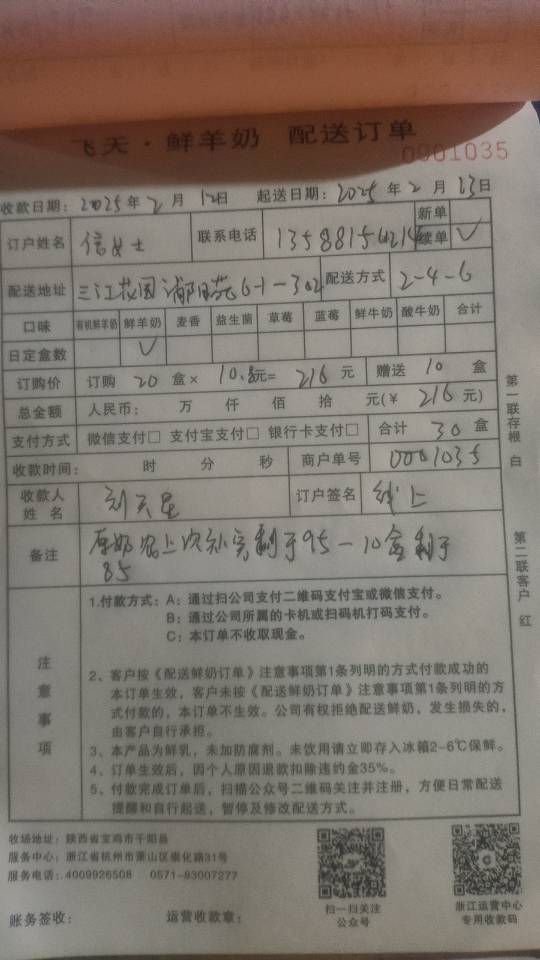 飞天·鲜羊奶 配送订单
0001035
收款日期：2025年2月12日 起送日期：2025年2月13日
订户姓名 信女士 联系电话 新单
续单 ✓
配送地址 三江花园 6-1-302 配送方式 2-4-6
口味 有机鲜羊奶 鲜羊奶 麦香 益生菌 草莓 蓝莓 鲜牛奶 酸牛奶 合计
日定盒数 ✓
订购价 订购 20 盒× 10.8元= 216 元 赠送 10 盒
总金额 人民币： 万 仟 佰 拾 元(￥ 216 元)
支付方式 微信支付□ 支付宝支付□ 银行卡支付□ 合计 30 盒
收款时间： 时 分 秒 商户单号 0001035
收款人姓名 刘天星 订户签名 线上
备注 原奶 上次补完剩于95-10盒剩于
85
第一联存根 白
第二联客户 红
注意事项
1.付款方式：A：通过扫公司支付二维码支付宝或微信支付。
B：通过公司所属的卡机或扫码机打码支付。
C：本订单不收取现金。
2、客户按《配送鲜奶订单》注意事项第1条列明的方式付款成功的
本订单生效，客户未按《配送鲜奶订单》注意事项第1条列明的方
式付款的，本订单不生效。公司有权拒绝配送鲜奶，发生损失的，
由客户自行承担。
3、本产品为鲜乳，未加防腐剂。未饮用请立即存入冰箱2-6℃保鲜。
4、订单生效后，因个人原因退款扣除违约金35%。
5、付款完成订单后，扫描公众号二维码关注并注册，方便日常配送
提醒和自行起送，暂停及修改配送方式。
牧场地址：陕西省宝鸡市千阳县
服务中心：浙江省杭州市萧山区崇化路31号
服务电话：4009926508 0571-83007277
扫一扫关注
公众号
浙江运营中心
专用收款码
账务签收： 运营收款章：